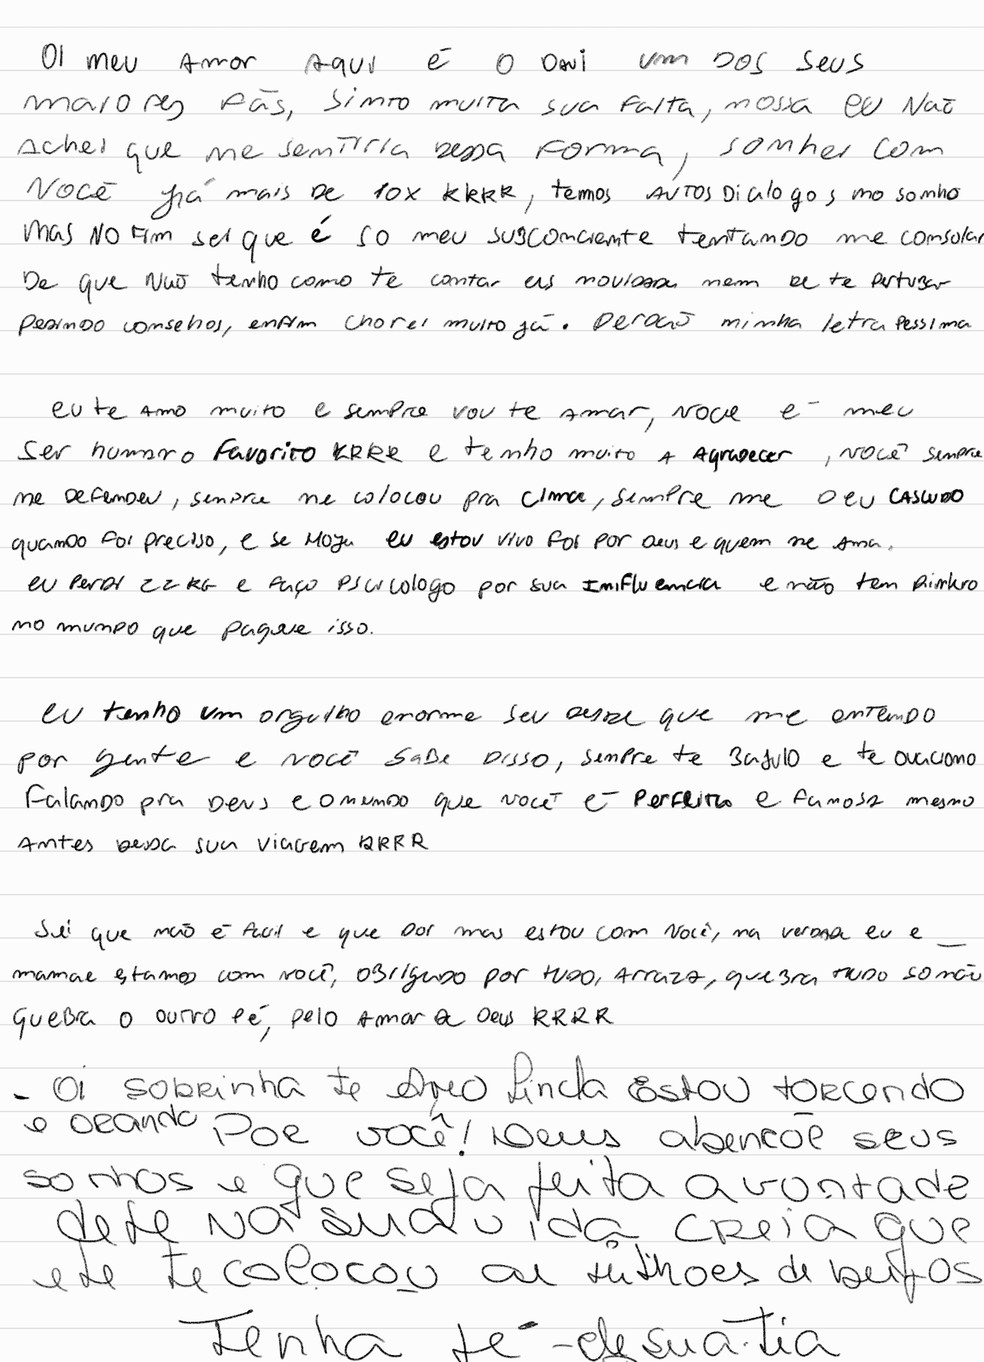 OI meu Amor Aqui é o Davi um dos seus
maiores Fãs, sinto muita sua Falta, nossa eu Não
Achei que me sentiria dessa Forma, sonhei com
Você já mais de 10x KRRR, temos AUTOS Dialogos no sonho
mas NO Fim sei que é só meu SUBconciente tentando me consolar
De que Não tenho como te contar as novidades nem de te Pertubar
Pedindo conselhos, enfim chorei muito já. Perdão minha letra Pessima
eu te Amo muito e sempre vou te Amar, voce é meu
Ser humano Favorito KRRR e tenho muito A Agradecer, você sempre
me Defendeu, sempre me colocou pra Cima, sempre me Deu CASCUDO
quando Foi preciso, e se Hoje eu estou vivo Foi por Deus e quem me Ama.
eu Perdi 22 KG e Faço Psicologo por sua Imifluencia e não tem Dinheiro
no mundo que pague isso.
eu tenho um orgulho enorme seu desde que me entendo
por gente e você SaBe Disso, sempre te Bajulo e te ovaciono
Falando pra Deus e o mundo que você é Perfeita e Famosa mesmo
Antes dessa sua Viagem KRRR
Sei que não é Facil e que Doi mas estou com Você, na verdade eu e
mamae estamos com você, OBrigado por tudo, Arraza, queBra tudo só não
QueBra o outro Pé, pelo Amor de Deus KRRR
- Oi sobrinha te Amo linda Estou torcendo
e orando Por você! Deus abençõe seus
sonhos e que seja feita a vontade
dele na sua vida creia que
ele te colocou aí milhoes de beijos
Tenha fé - de sua tia